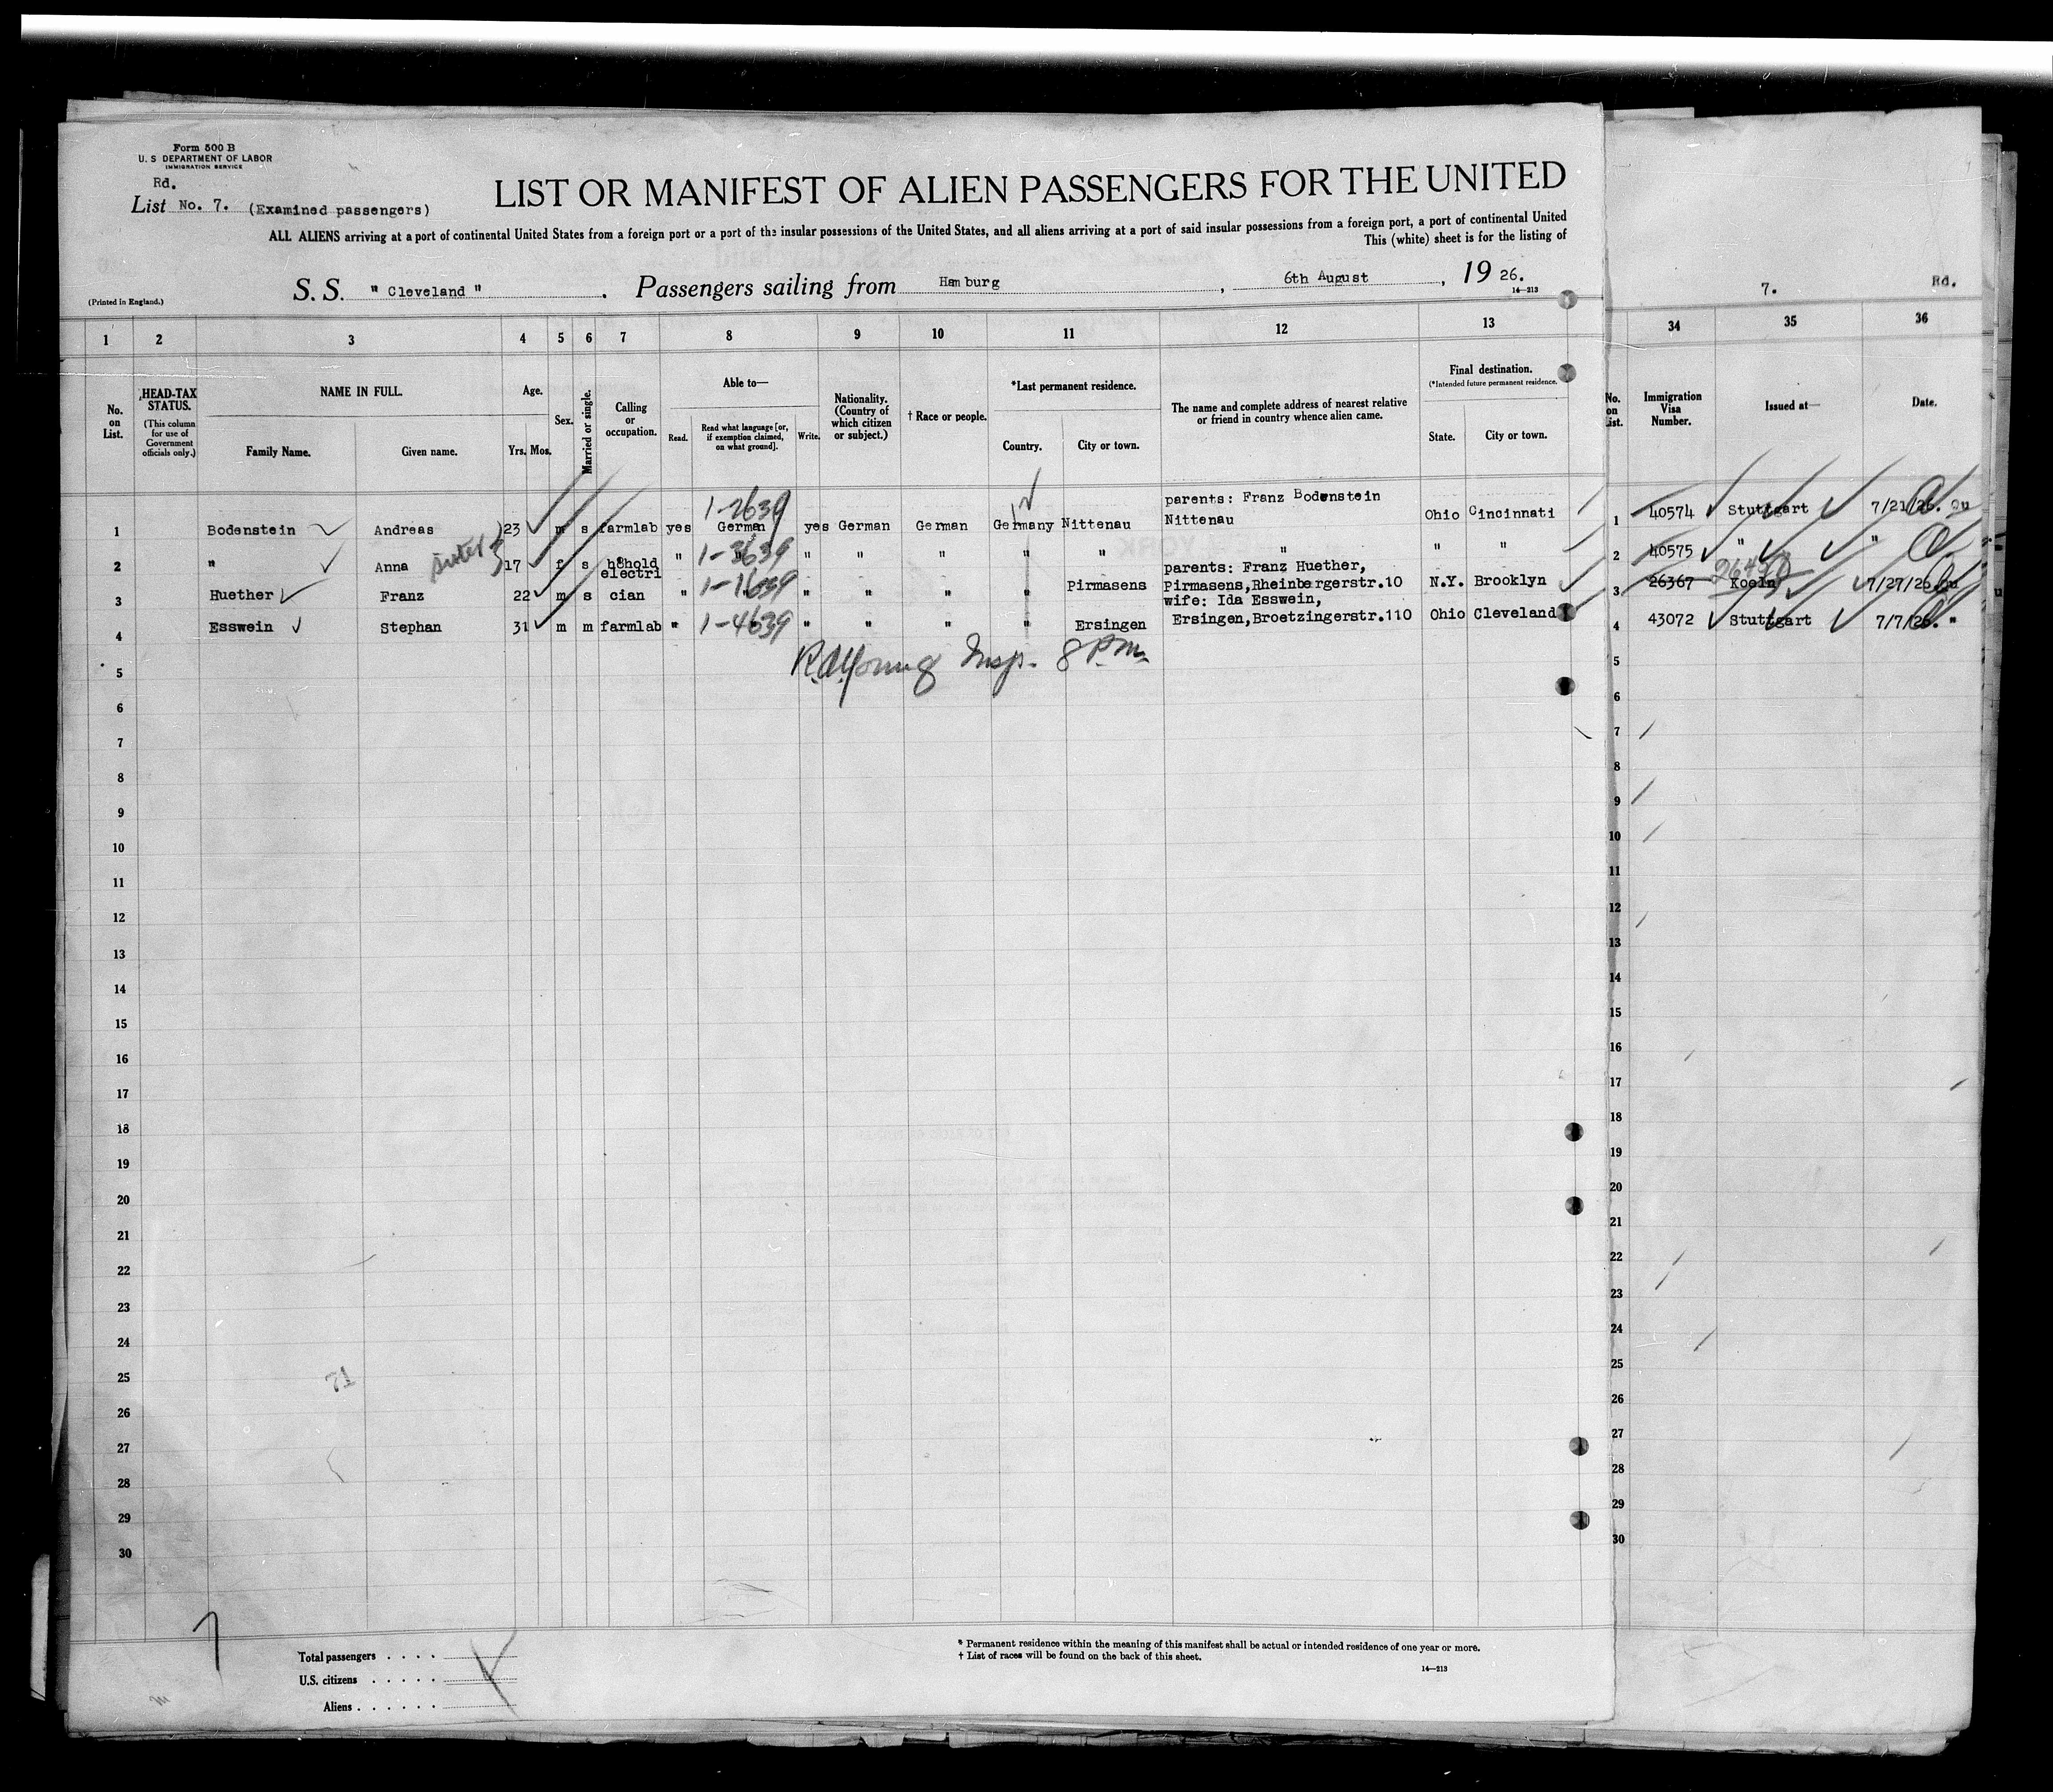 Form 500 B
U. S DEPARTMENT OF LABOR
IMMIGRATION SERVICE
Rd.
List No. 7. (Examined passengers)
LIST OR MANIFEST OF ALIEN PASSENGERS FOR THE UNITED
ALL ALIENS arriving at a port of continental United States from a foreign port or a port of the insular possessions of the United States, and all aliens arriving at a port of said insular possessions from a foreign port, a port of continental United
This (white) sheet is for the listing of
(Printed in England.)
S. S. " Cleveland " . Passengers sailing from Hamburg , 6th August , 19 26.
14—213
7. Rd.
1 2 3 4 5 6 7 8 9 10 11 12 13 34 35 36
No. on List.
HEAD-TAX STATUS.
(This column for use of Government officials only.)
NAME IN FULL.
Family Name. Given name.
Age.
Yrs. Mos.
Sex.
Married or single.
Calling or occupation.
Able to—
Read. Read what language [or, if exemption claimed, on what ground]. Write.
Nationality. (Country of which citizen or subject.)
† Race or people.
*Last permanent residence.
Country. City or town.
The name and complete address of nearest relative or friend in country whence alien came.
Final destination.
(*Intended future permanent residence.
State. City or town.
No. on List.
Immigration Visa Number.
Issued at—
Date.
1-2639
parents: Franz Bodenstein
1 Bodenstein Andreas 23 m s farmlab yes German yes German German Germany Nittenau Nittenau Ohio Cincinnati 1 40574 Stuttgart 7/21/26. Qu
sister
2 " Anna 17 f s h8hold " 1-3639 " " " " " " " " 2 40575 " "
electri
parents: Franz Huether,
3 Huether Franz 22 m s cian " 1-1639 " " " " Pirmasens Pirmasens,Rheinbergerstr.10 N.Y. Brooklyn 3 26367 Koeln 7/27/26. Qu
wife: Ida Esswein,
4 Esswein Stephan 31 m m farmlab " 1-4639 " " " " Ersingen Ersingen,Broetzingerstr.110 Ohio Cleveland 4 43072 Stuttgart 7/7/26. "
R.A.Young Insp. 8 P.m.
5 5
6 6
7 7
8 8
9 9
10 10
11 11
12 12
13 13
14 14
15 15
16 16
17 17
18 18
19 19
20 20
21 21
22 22
23 23
24 24
25 25
26 26
27 27
28 28
29 29
30 30
Total passengers . . . .
U.S. citizens . . . . .
Aliens . . . . . .
* Permanent residence within the meaning of this manifest shall be actual or intended residence of one year or more.
† List of races will be found on the back of this sheet.
14—213